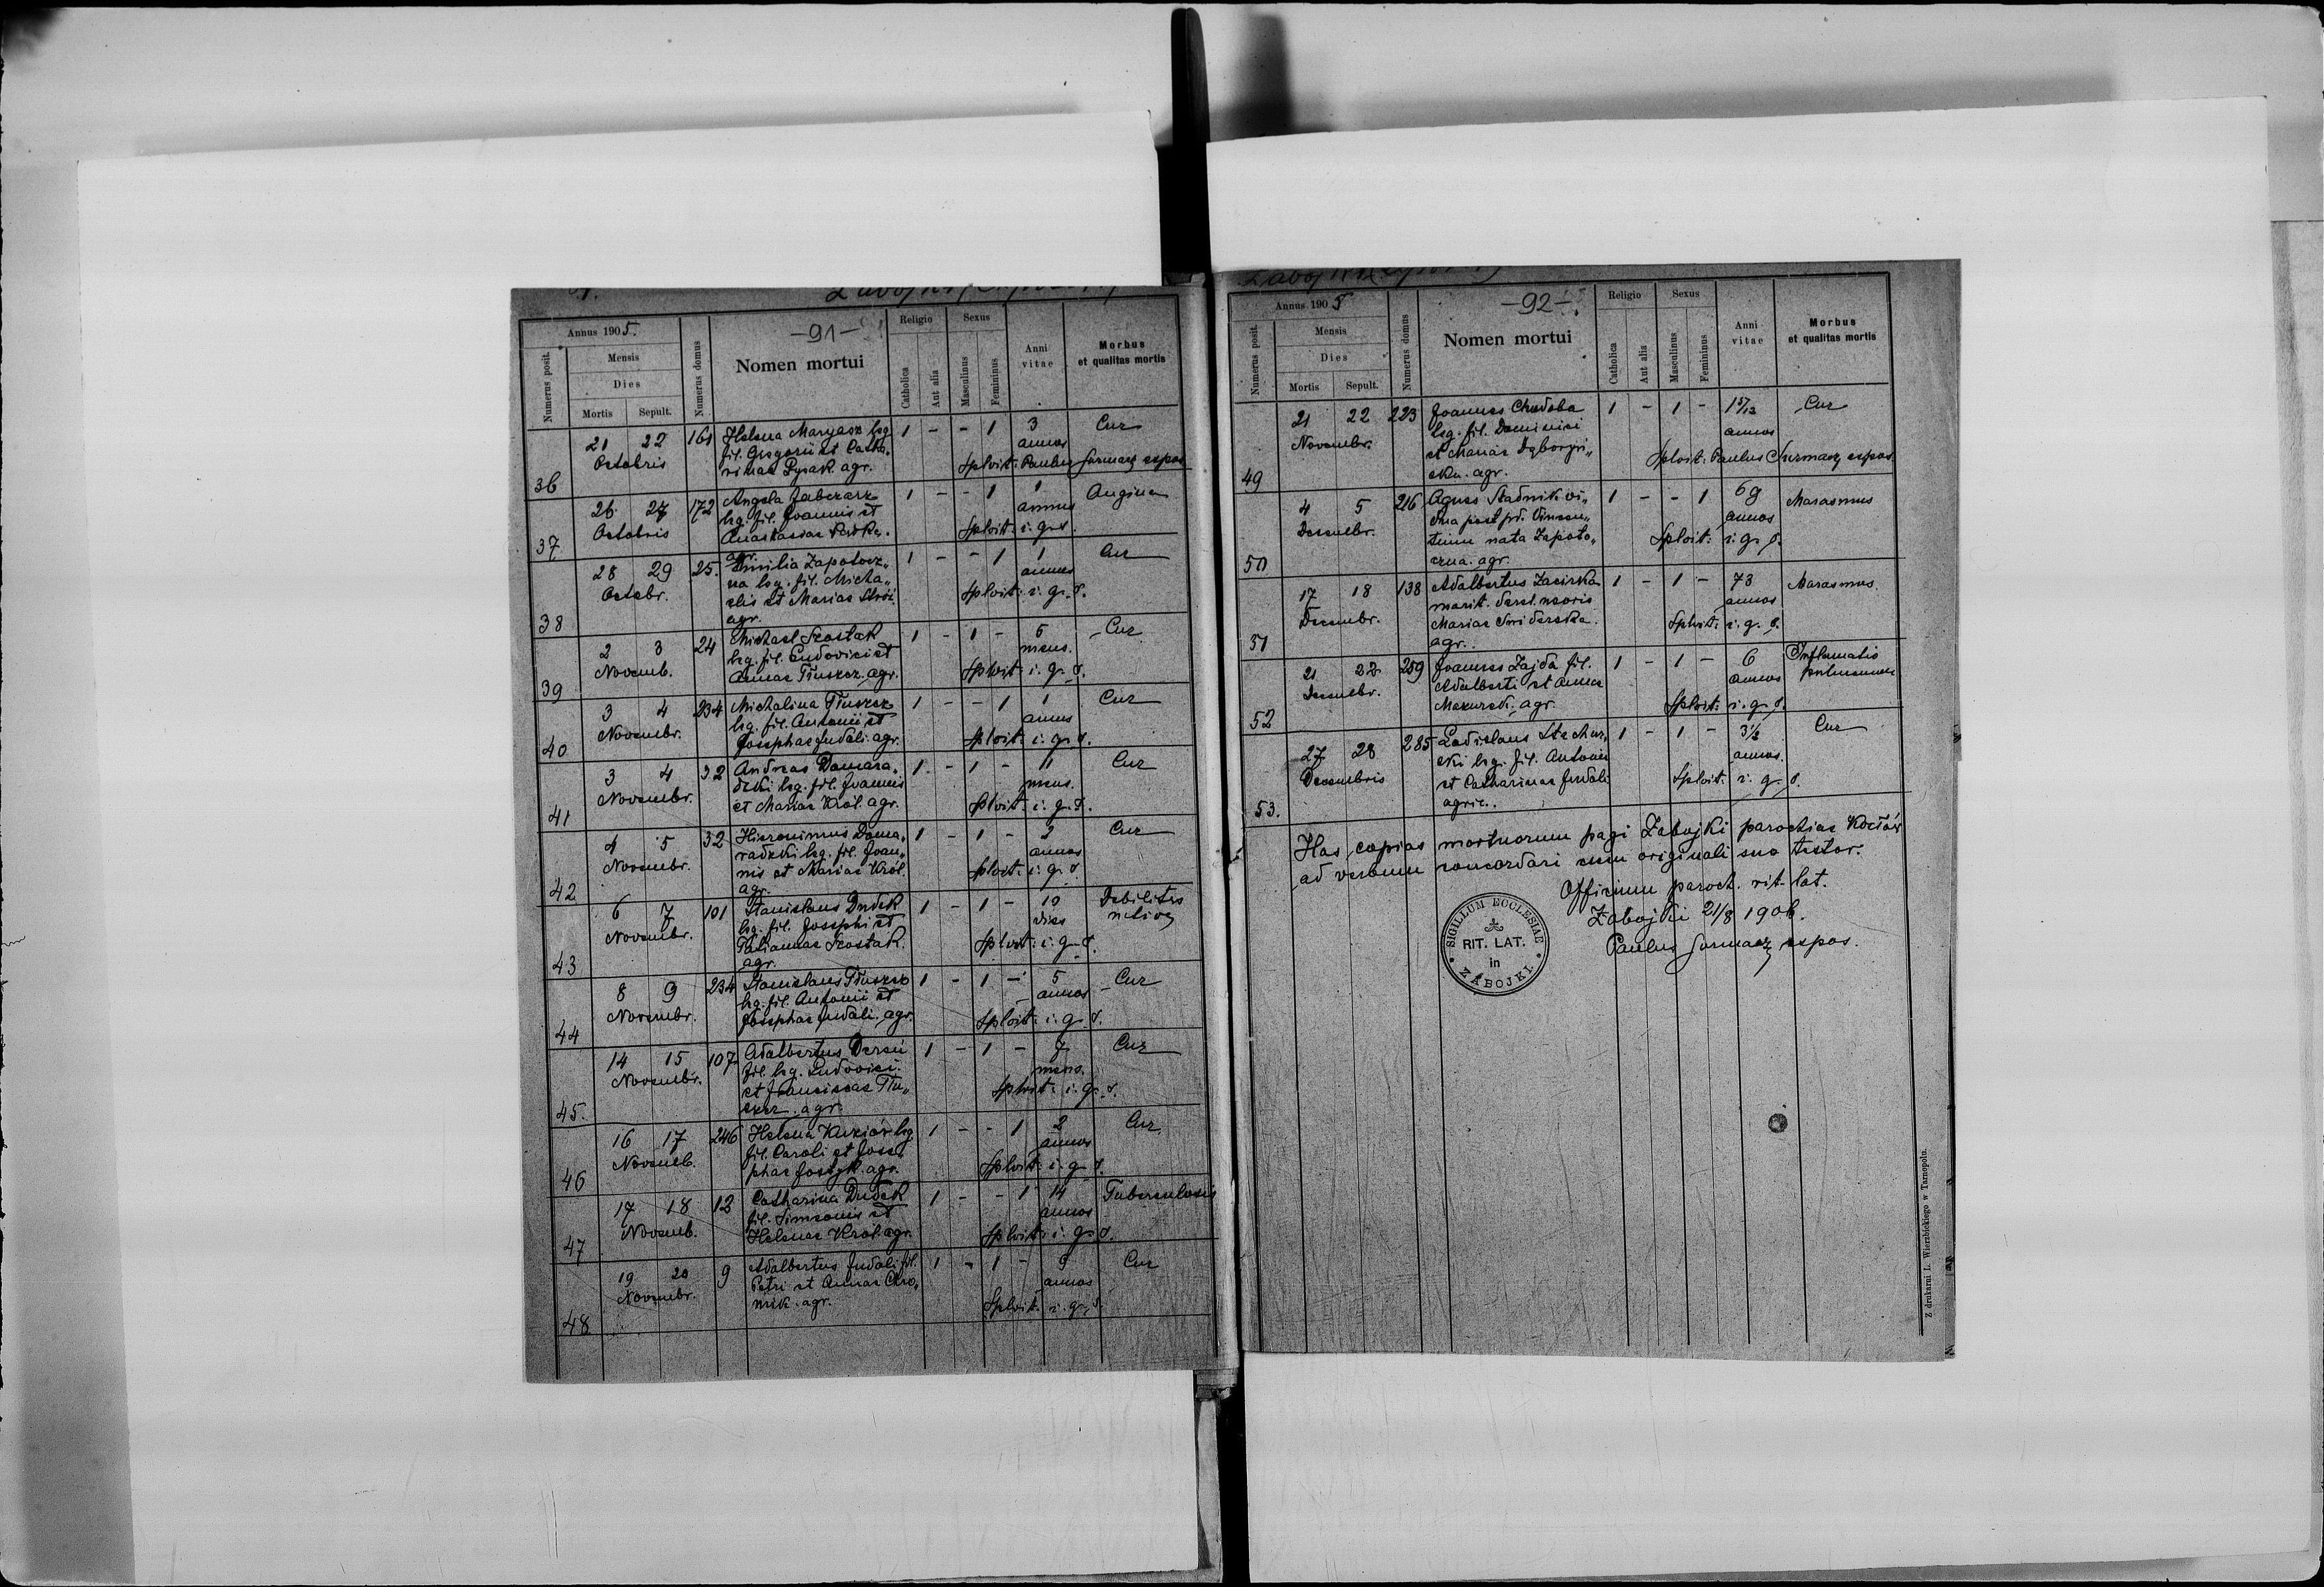 Annus 1905.
Mensis
Dies
Mortis Sepult.
Numerus posit.
Numerus domus
-91-
Nomen mortui
Religio
Catholica
Aut alia
Sexus
Masculinus
Femininus
Anni
vitae
Morbus
et qualitas mortis
36 21 22 161 Helena Maryasz leg. 1 - - 1 3 Cur
Octobris fil. Gregorii et Catha„ annos
rinae Pysak. agr. Splvit: Paulus expos
37 26 27 172 Angela 1 - - 1 1 Angina
Octobris leg. fil. Joannis et annus
Anastasiae Splvit: i. q. s.
agr.
38 28 29 25. Emilia Zapotocz„ 1 - - 1 1 Cur
Octobr. na leg. fil. Micha„ annus
elis et Mariae Splvit: i. q. s.
agr.
39 2 3 24 Michael Szostak 1 - 1 - 6 Cur
Novemb. leg. fil. Ludovici et mens.
Annae Tłuszcz. agr. Splvit: i. q. s.
40 3 4 234 Michalina Tłuszcz 1 - - 1 1 Cur
Novembr. leg. fil. Antonii et annus
Josephae Judali. agr. Splvit: i. q. s.
41 3 4 32 Andreas Domara„ 1 - 1 - 11 Cur
Novembr. dzki leg. fil. Joannis mens.
et Mariae Król. agr. Splvit: i. q. s.
42 4 5 32 Hieronimus Doma„ 1 - 1 - 2 Cur
Novembr. radzki leg. fil. Joan„ annos
nis et Mariae Król. Splvit: i. q. s.
agr.
43 6 7 101 Stanislaus Dudek 1 - 1 - 10 Debilitas
Novembr. leg. fil. Josephi et dies nativa
Julianae Szostak. Splvit: i. q. s.
agr.
44 8 9 234 Stanislaus Tłuszcz 1 - 1 - 5 Cur
Novembr. leg. fil. Antonii et annos
Josephae Judali. agr. Splvit: i. q. s.
45. 14 15 107 Adalbertus Dereń 1 - 1 - 7 Cur
Novembr. fil. leg. Ludovici mens.
et Franciscae Tłu„ Splvit: i. q. s.
szcz. agr.
46 16 17 246 Helena leg. 1 - - 1 2 Cur.
Novemb. fil. Caroli et Jose„ annos
phae agr. Splvit: i. q. s.
47 17 18 12 Catharina Dudek 1 - - 1 14 Tuberculosis
Novemb. fil. Simeonis et annos
Helenae Król. agr. Splvit: i. q. s.
48 19 20 9 Adalbertus Judali fil. 1 - 1 - 9 Cur
Novembr. Petri et Annae annos
mik. agr. Splvit: i. q. s.
Annus 1905
Mensis
Dies
Mortis Sepult.
Numerus posit.
Numerus domus
-92-
Nomen mortui
Religio
Catholica
Aut alia
Sexus
Masculinus
Femininus
Anni
vitae
Morbus
et qualitas mortis
49 21 22 223 Joannes Chudoba 1 - 1 - Cur
Novembr. leg. fil. Dominici annos
et Mariae Splvit: Paulus expos
agr.
50 4 5 216 Agnes Stadnik vi„ 1 - - 1 68 Marasmus
Decembr. dua post pd. Vincen„ annos
tium nata Zapoto„ Splvit: i. q. s.
czna. agr.
51 17 18 138 Adalbertus Zacirka 1 - 1 - 73 Marasmus.
Decembr. marit. derel. uxoris annos
Mariae Świderska. Splvit: i. q. s.
agr.
52 21 22 259 Joannes Zajda fil. 1 - 1 - 6 Inflamatio
Decembr. Adalberti et Annae annos pulmonum
Mazurek. agr. Splvit: i. q. s.
53. 27 28 285 Ladislaus 1 - 1 - 3½ Cur
Decembris ski leg. fil. Antonii annos.
et Catharinae Judali Splvit: i. q. s.
agric.
Has copias mortuorum pagi Zabojki parochiae
ad verbum concordari cum originali suo testor.
Officium paroch. rit. lat.
Zabojki 21/8 1906.
Paulus expos.
SIGILLUM ECCLESIAE
RIT. LAT.
in
ZABOJKI.
Z drukarni L. Wierzbickiego w Tarnopolu.